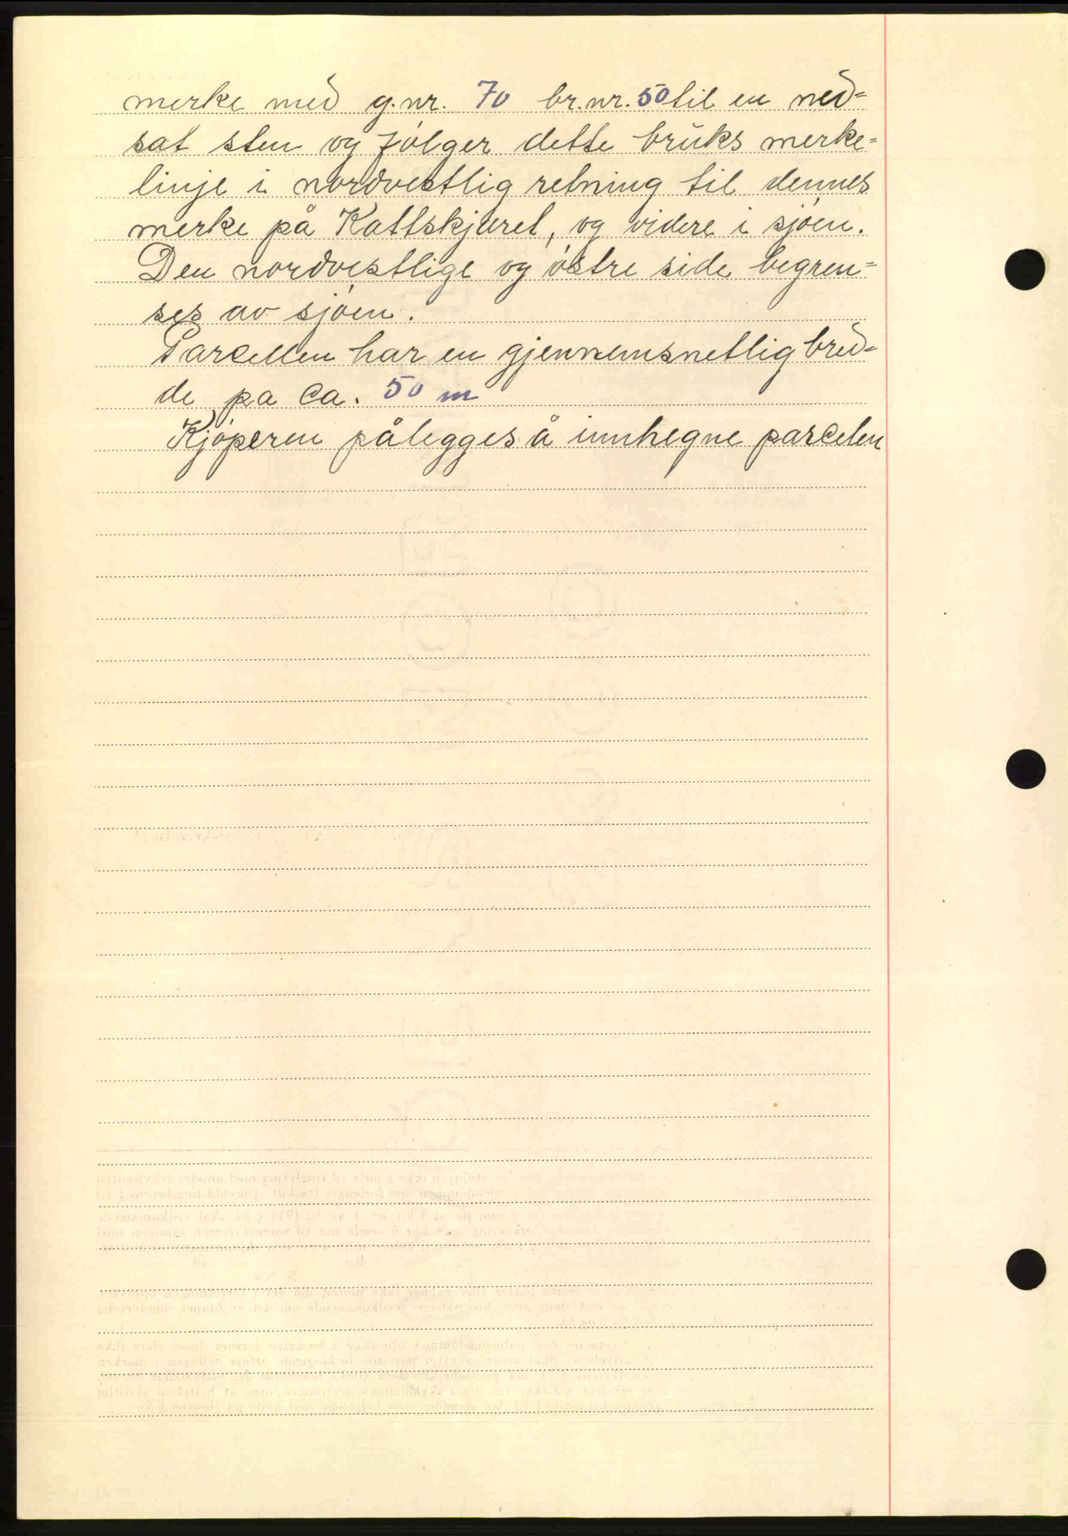 merke med g.nr. 70 br.nr. 50 til en ned=
sat sten og følger dette brŭks merke=
linje i nordvestlig retning til dennes
merke på Kattskjæret, og videre i sjóen.
Den nordvestlige og óstre side begren=
ses av sjóen.
Parcellen har en gjennemsnetlig bred=
de pa ca. 50 m
Kjóperen pålegges å innhegne parcelen